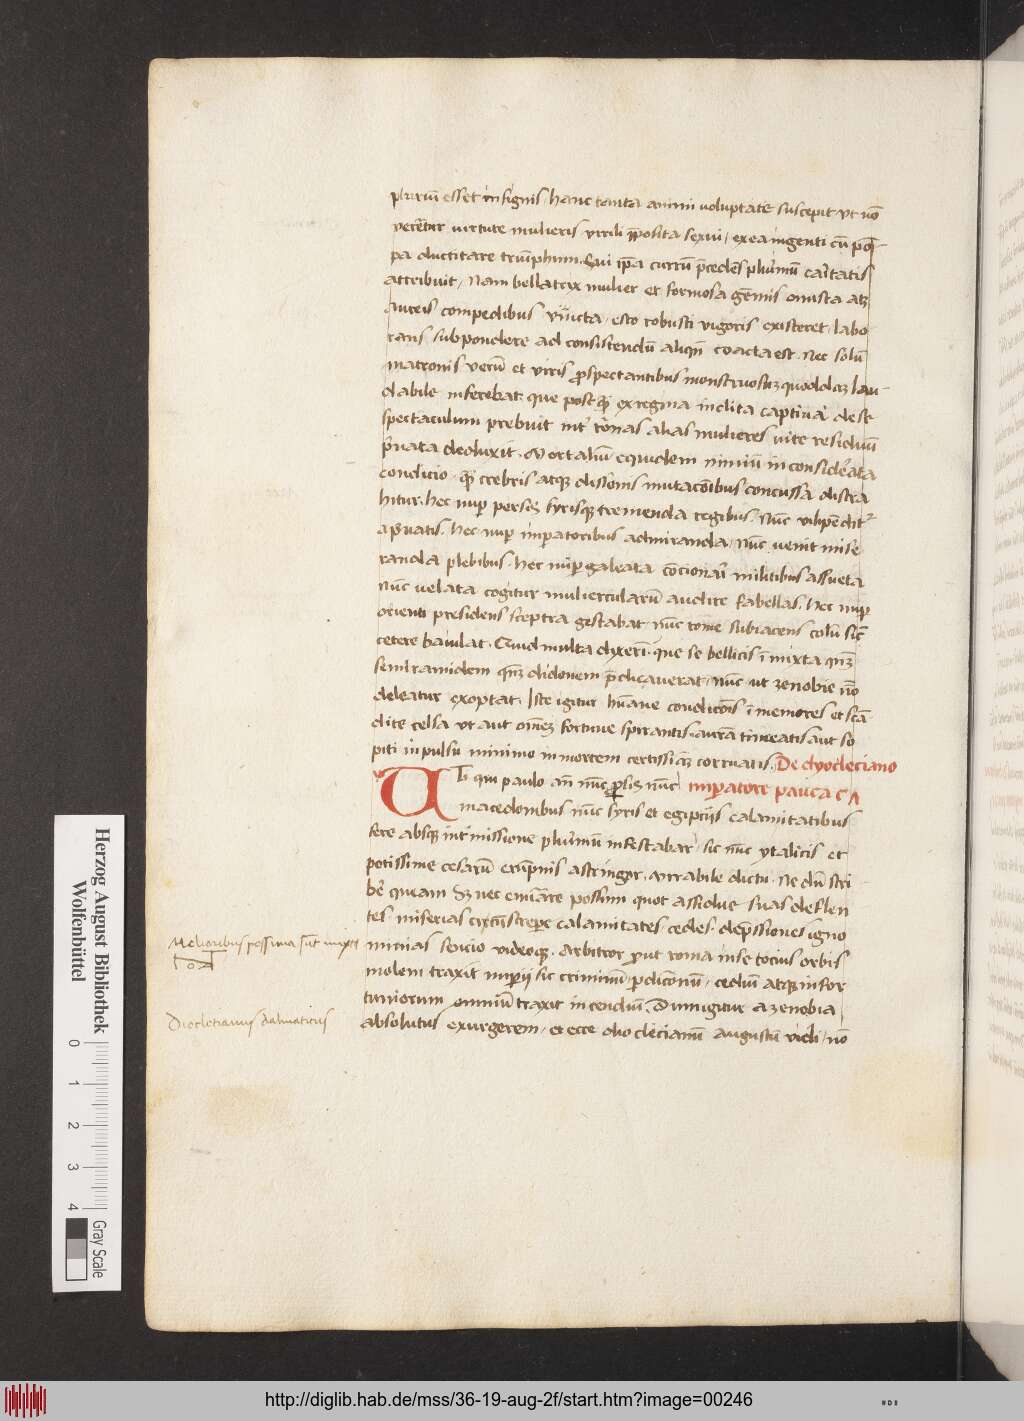 plurimū esset insignis. hanc tanta animi voluptate suscepit vt nō
verētur virtute mulieris virili īposita sexui / ex ea ingenti cū pō
pa ductitare triūphum. Cui ipā currū p̄cedēs plurimū caritatis
attribuit / Nam bellatrix mulier et formosa gēmis onusta atqȝ
aureis compedibus vincta / esto robusti vigoris existeret / labo
rans sub pondere ad consistendū aliqñ coacta est. Nec solū
matronis verū et viris prospectantibus monstruosūqȝ quoddā lau
dabile inferebat. que postqȝ ex regina inclita captiva de se
spectaculum prebuit int' romās alias mulieres vite residuū
privata deduxit. Mortaliū equidem nimiū inconsiderata
condicio. qȝ crebris atqȝ dissonis mutacōibus concussa distra
hitur. hec nup persis syrisqȝ tremenda regibus. Nūc vilipendit'
a privatis. hec nup imperatoribus admiranda / Nūc venit mise
randa plebibus. hec nup galeata concionari militibus assueta
nūc velata cogitur muliercularū audire fabellas. hec nup
orienti presidens sceptra gestabat. nūc rome subiacens colū sic
cetere baiulat. Quid multa dixerim. que se bellicis īmixta
semiramidem didonem p̄dicaverat / nūc ut zenobie nō
deleatur exoptat. Iste igitur hūane condicōis īmemores et scā
dite celsa vt aut fortune spirantis aurā timeatis aut so
piti inpulsu minimo in mortem certissimā corruatis. De dyocleciano
imperatore pauca ca
Ub qui paulo an̄ nūc persis nūc
macedonibus nūc syris et egiptiis calamitatibus
fere absqȝ int'missione plurimū infestabar / sic nūc ytalicis et
potissime cesarū erūpnis astringor. mirabile dictu. Ne dū scri
bere quam sȝ nec enūare possim quot assidue suas deflen
tes miserias circūstrepe calamitates. cedes. depressiones igno
minias sencio videoqȝ. Arbitror prout roma in se tocius orbis
molem traxit imperii sic criminū prodicionū / cediū atqȝ infor
tuniorum omniū traxit incendiū. Dum igitur a zenobia
absolutus exurgerem / et ecce diocleciānū augustū vidi / nō
Melioribus pessima sūt mixta
Diocletianus dalmaticus
Herzog August Bibliothek
Wolfenbüttel
0 1 2 3 4 Gray Scale
http://diglib.hab.de/mss/36-19-aug-2f/start.htm?image=00246